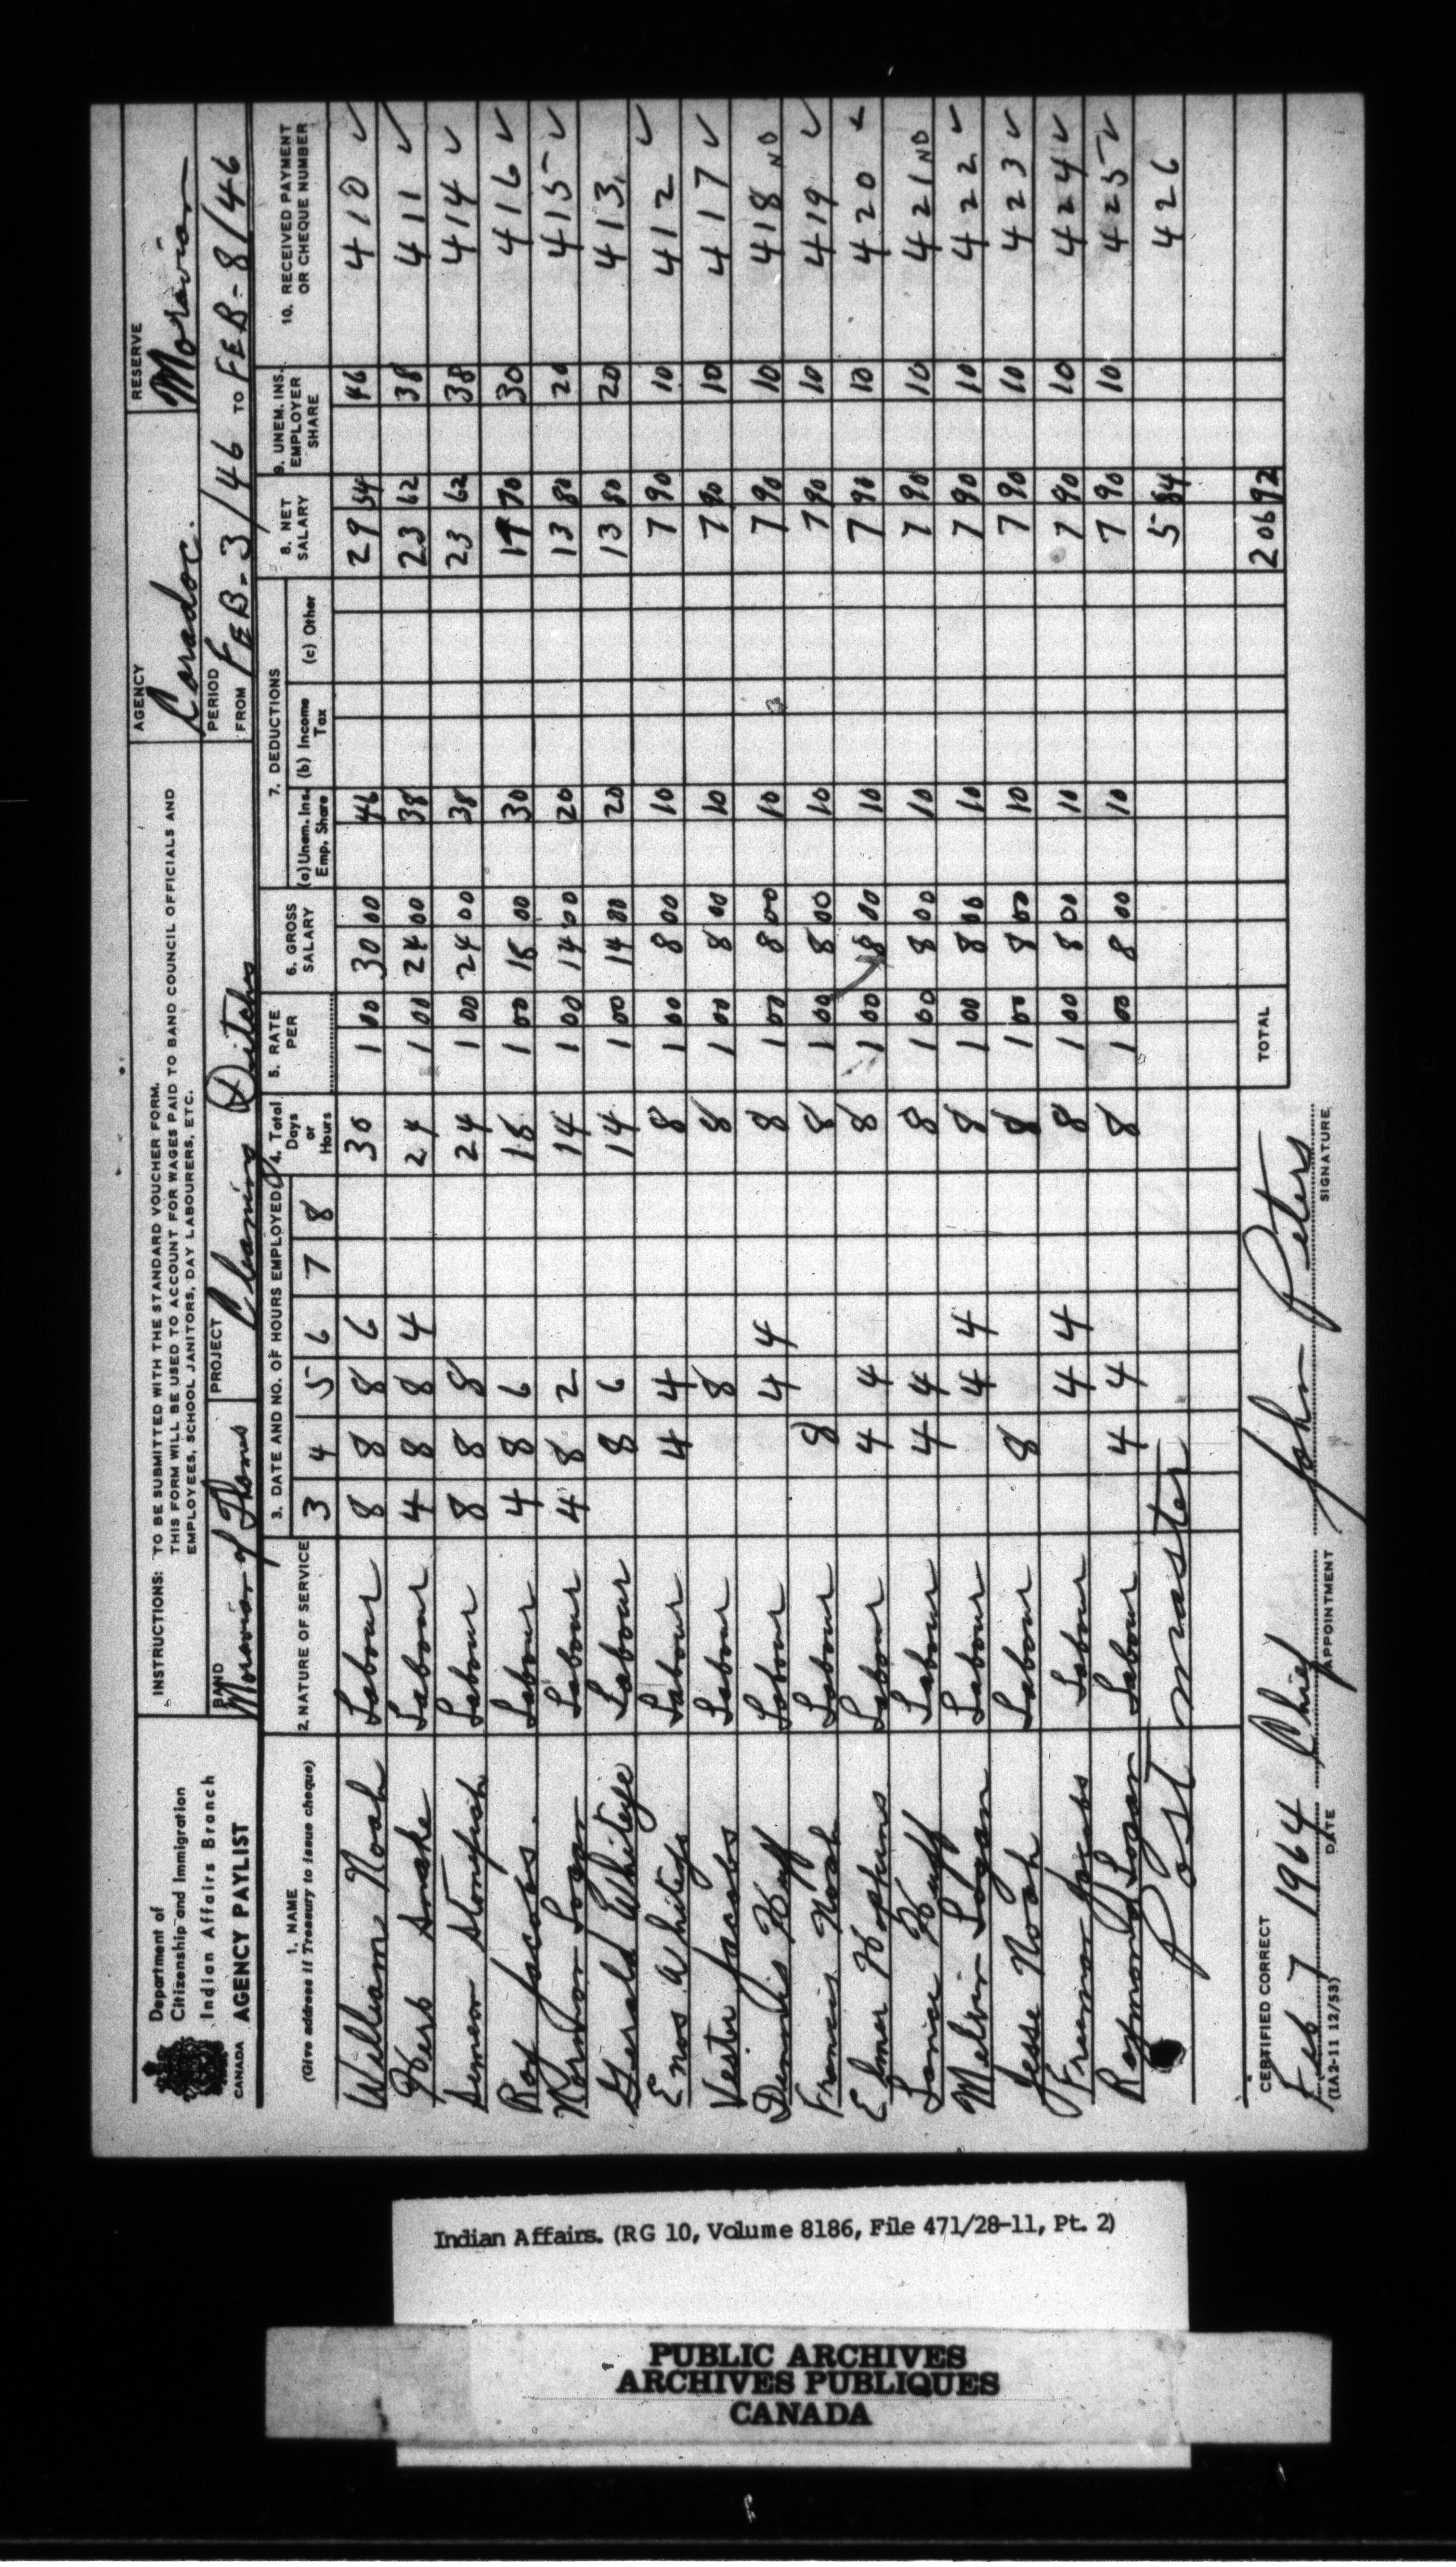 Department of
Citizenship and Immigration
Indian Affairs Branch
CANADA AGENCY PAYLIST
INSTRUCTIONS: TO BE SUBMITTED WITH THE STANDARD VOUCHER FORM.
THIS FORM WILL BE USED TO ACCOUNT FOR WAGES PAID TO BAND COUNCIL OFFICIALS AND
EMPLOYEES, SCHOOL JANITORS, DAY LABOURERS, ETC.
AGENCY Caradoc.
RESERVE Moravian
BAND Moravian of Thames
PROJECT Cleaning Ditches
PERIOD FROM FEB-3/46 TO FEB-8/46
1. NAME (Give address if Treasury to issue cheque) 2. NATURE OF SERVICE 3. DATE AND NO. OF HOURS EMPLOYED 3 4 5 6 7 8 4. Total Days or Hours 5. RATE PER 6. GROSS SALARY 7. DEDUCTIONS (a) Unem. Ins. Emp. Share (b) Income Tax (c) Other 8. NET SALARY 9. UNEM. INS. EMPLOYER SHARE 10. RECEIVED PAYMENT OR CHEQUE NUMBER
William Noah Labour 8 8 8 6 30 1 00 30 00 46 29 54 46 410 ✓
Herb Snake Labour 4 8 8 4 24 1 00 24 00 38 23 62 38 411 ✓
Simeon Stonefish Labour 8 8 8 24 1 00 24 00 38 23 62 38 414 ✓
Roy Jacobs. Labour 4 8 6 18 1 00 18 00 30 17 70 30 416 ✓
Norman Logan Labour 4 8 2 14 1 00 14 00 20 13 80 20 415 ✓
Gerald Whiteye Labour 8 6 14 1 00 14 00 20 13 80 20 413
Enos Whiteye Labour 4 4 8 1 00 8 00 10 7 90 10 412 ✓
Vester Jacobs Labour 8 8 1 00 8 00 10 7 90 10 417 ✓
Dennis Huff Labour 4 4 8 1 00 8 00 10 7 90 10 418 ND
Francis Noah Labour 8 8 1 00 8 00 10 7 90 10 419 ✓
Elmer Hopkins Labour 4 4 8 1 00 8 00 10 7 90 10 420 ✓
Huff Labour 4 4 8 1 00 8 00 10 7 90 10 421 ND
Melvin Logan Labour 4 4 8 1 00 8 00 10 7 90 10 422 ✓
Jesse Noah Labour 8 8 1 00 8 00 10 7 90 10 423 ✓
Freeman Jacobs Labour 4 4 8 1 00 8 00 10 7 90 10 424 ✓
Raymond Logan Labour 4 4 8 1 00 8 00 10 7 90 10 425 ✓
Post master 5 84 426
TOTAL 206 92
CERTIFIED CORRECT
Feb 7 1964 Chief John Peters
(IA2-11 12/53) DATE APPOINTMENT SIGNATURE
Indian Affairs. (RG 10, Volume 8186, File 471/28-11, Pt. 2)
PUBLIC ARCHIVES
ARCHIVES PUBLIQUES
CANADA